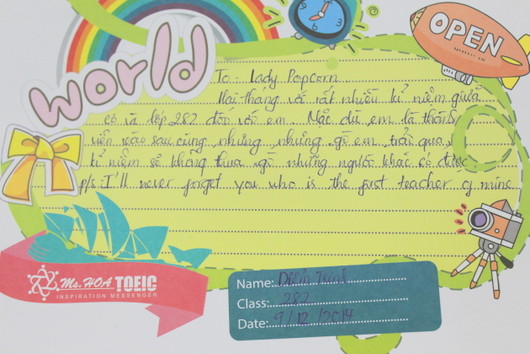 world
OPEN
To: Lady Popcorn
Hai tháng với rất nhiều kỉ niệm giữa
cô và lớp 282 đối với em. Mặc dù em là thành
viên vào sau cùng nhưng những gì em trải qua,
kỉ niệm sẽ không thua gì những người khác có được
p/s I'll never forget you who is the first teacher of mine
Ms. HOA TOEIC
INSPIRATION MESSENGER
Name:
Class: 282
Date: 9/12/2014